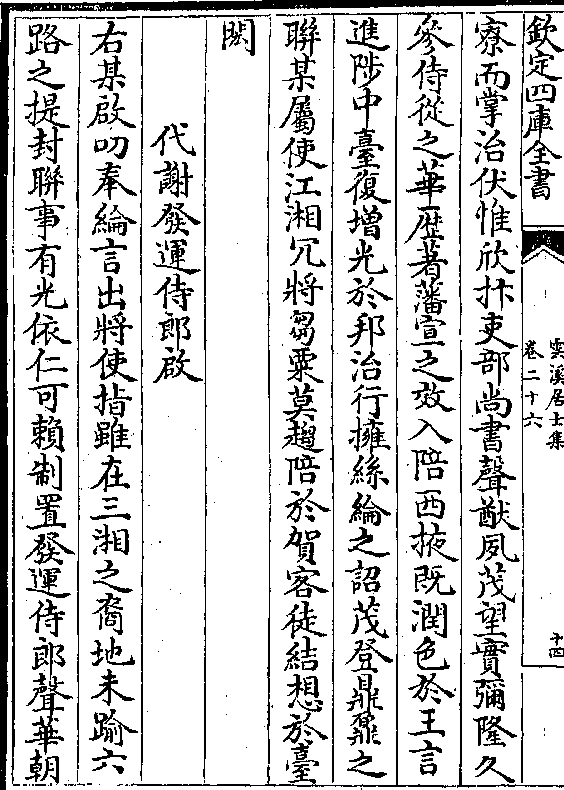 欽定四庫全書
雲溪居士集
卷二十六
十四
寮而掌治伏惟欣抃吏部尚書聲猷夙茂望實彌隆久
參侍從之華歴著藩宣之效入陪西掖既潤色於王言
進陟中臺復増光於邦治行擁絲綸之詔茂登鼎鼐之
聯某屬使江湘冗將芻粟莫趨陪於賀客徒結想於臺
閎
代謝發運侍郎啟
右某啟叨奉綸言出將使指雖在三湘之裔地未踰六
路之提封聯事有光依仁可賴制置發運侍郎聲華朝